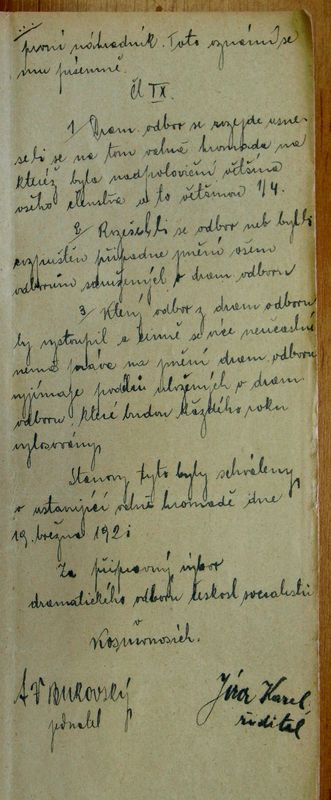 první náhradník. Toto oznámí se
mu písemně.
Čl IX.
1/ Dram. odbor se rozejde usne-
selí se na tom valná hromada na
kteréž byla nadpoloviční většina
všeho členstva a to většinou 3/4.
2/ Rozešel-li se odbor neb byl-li
rozpuštěn připadne jmění všem
odborům sdruženým v dram. odboru
3/ Který odbor z dram odboru
by vystoupil a jemně se více neúčastní
nemá práva na jmění dram. odboru
vyjímaje podílů uložených v dram.
odboru, které budou každého roku
vylosovány
Stanovy tyto byly schváleny
v ustavující valné hromadě dne
19. března 1921
Za přípravný výbor
dramatického odboru českosl socialistů
v
Kosmonosích.
A V Bukovský
jednatel
Jíra Karel
ředitel